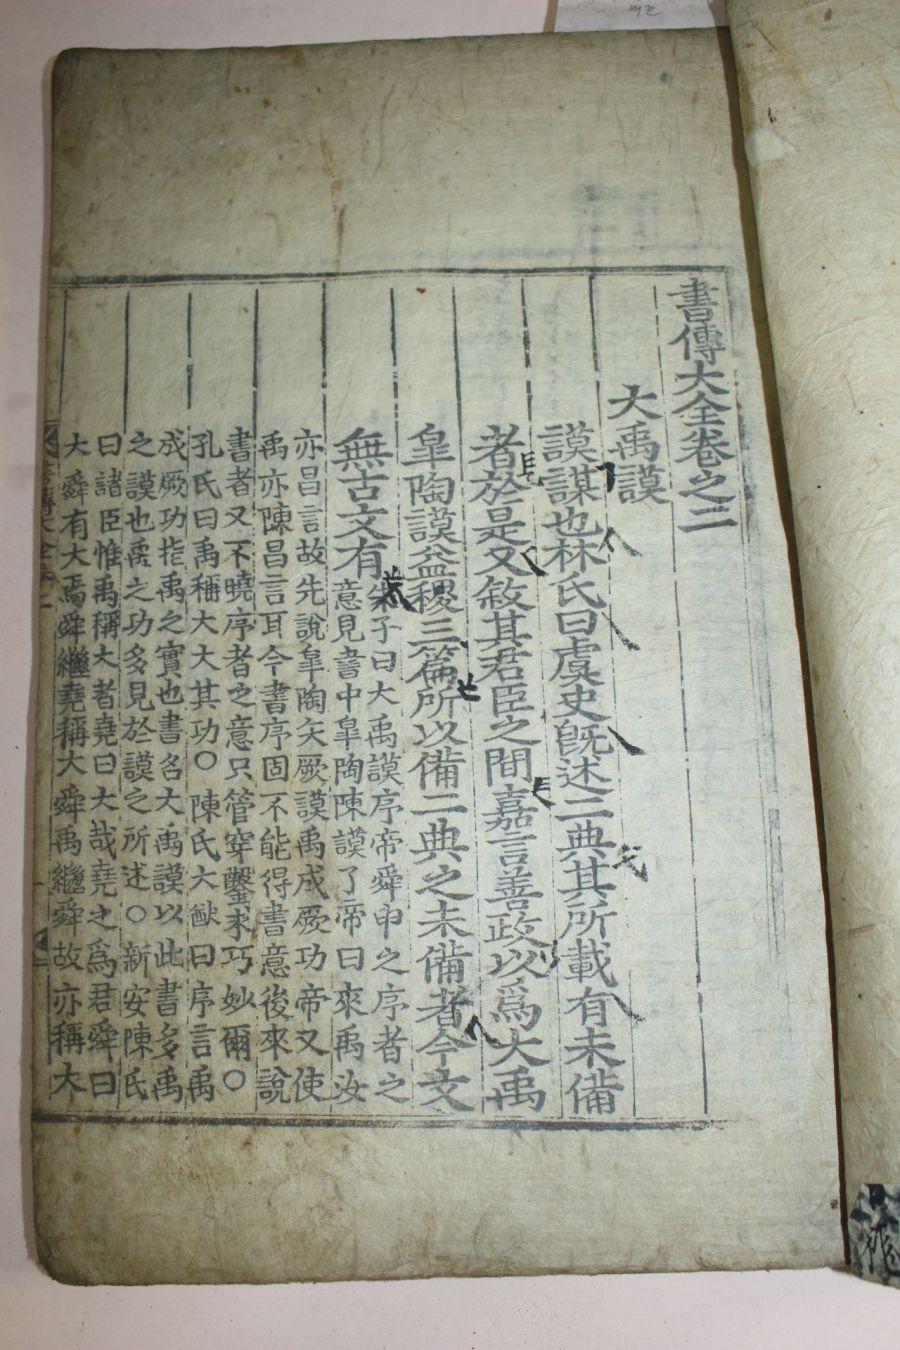 서전
書傳大全卷之二
大禹謨
謨謀也林氏曰虞史旣述二典其所載有未備
者於是又敘其君臣之間嘉言善政以爲大禹
皐陶謨益稷三篇所以備二典之未備者今文
無古文有
朱子曰大禹謨序帝舜申之序者之
意見書中皐陶陳謨了帝曰來禹汝
亦昌言故先說皐陶矢厥謨禹成厥功帝又使
禹亦陳昌言耳今書序固不能得書意後來說
書者又不曉序者之意只管穿鑿求巧妙爾○
孔氏曰禹稱大大其功○陳氏大猷曰序言禹
成厥功指禹之實也書名大禹謨以此書多禹
之謨也禹之功多見於謨之所述○新安陳氏
曰諸臣惟禹稱大者堯曰大哉堯之爲君舜曰
大舜有大焉舜繼堯稱大舜禹繼舜故亦稱大